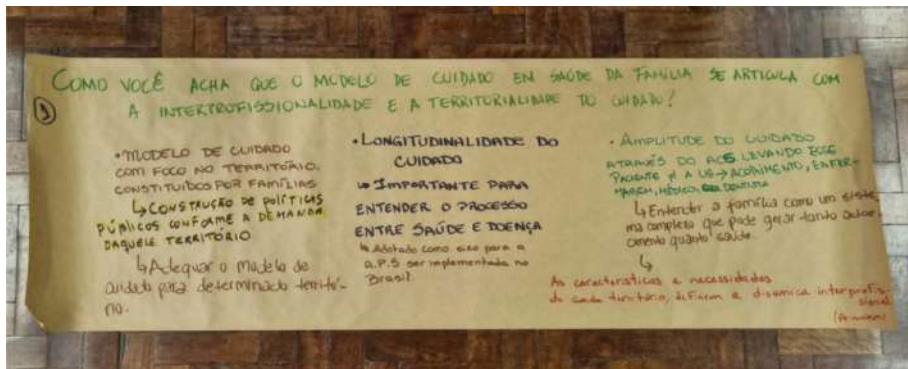 COMO VOCÊ ACHA QUE O MODELO DE CUIDADO EM SAÚDE DA FAMÍLIA SE ARTICULA COM
A INTERPROFISSIONALIDADE E A TERRITORIALIDADE DO CUIDADO?
• MODELO DE CUIDADO
COM FOCO NO TERRITÓRIO,
CONSTITUÍDOS POR FAMÍLIAS
↳ CONSTRUÇÃO DE POLÍTICAS
PÚBLICOS CONFORME A DEMANDA
DAQUELE TERRITÓRIO
↳ Adequar o modelo de
cuidado para determinado territó-
rio.
• LONGITUDINALIDADE DO
CUIDADO
↳ IMPORTANTE PARA
ENTENDER O PROCESSO
ENTRE SAÚDE E DOENÇA
↳ Adotado como eixo para a
A.P.S ser implementada no
Brasil.
• AMPLITUDE DO CUIDADO
ATRAVÉS DO ACS LEVANDO ESSE
PACIENTE P/ A US → ACOLHIMENTO, ENFER-
MAGEM, MÉDICO, DENTISTA
↳ Entender a família como um siste-
ma complexo que pode gerar tanto adoe-
cimento quanto saúde.
↳
As características e necessidades
de cada território, definem a dinâmica interprofis-
sional